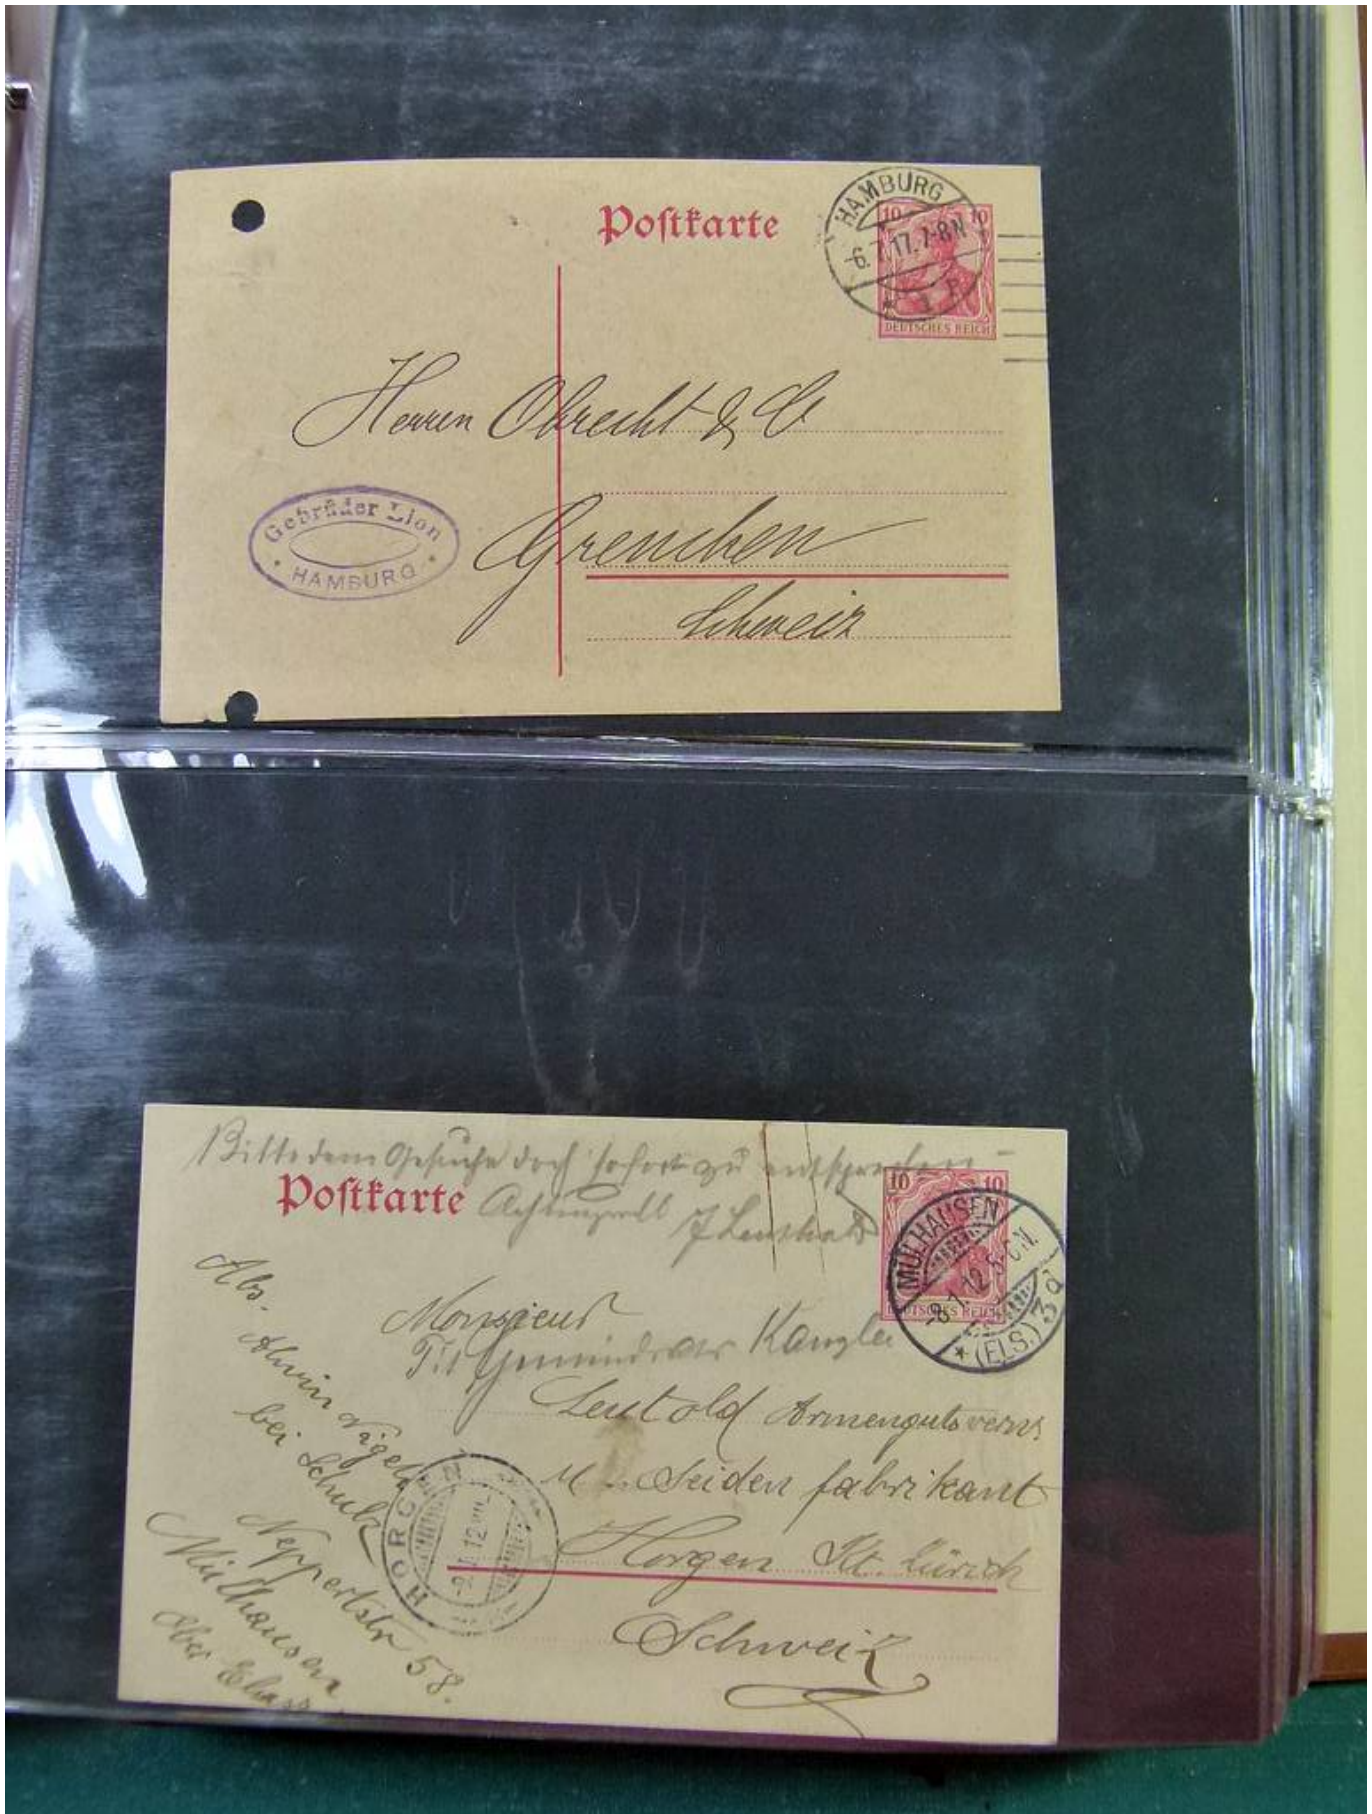 Postkarte
HAMBURG
-6.7.17.7-8N
* 1
10 10
DEUTSCHES REICH
Herren Obrecht & Co
Gebrüder Lion
HAMBURG
Grenchen
Schweiz
Bitte dem Gesuche doch sofort zu entsprechen -
Postkarte
Achtungsvoll
10 10
DEUTSCHES REICH
MÜLHAUSEN
-8.1.12.5-6N.
* (ELS.) 3d
Monsieur
Kanzlei
Leutold Armengutsverw.
Seidenfabrikant
Horgen Kt. Zürich
Schweiz
HORGEN
Abs.
bei Schulz
58.
Mülhausen
Ober Elsass